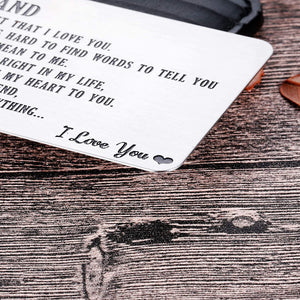 AND
T THAT I LOVE YOU.
HARD TO FIND WORDS TO TELL YOU
MEAN TO ME.
RIGHT IN MY LIFE,
MY HEART TO YOU.
END.
YTHING...
I Love You